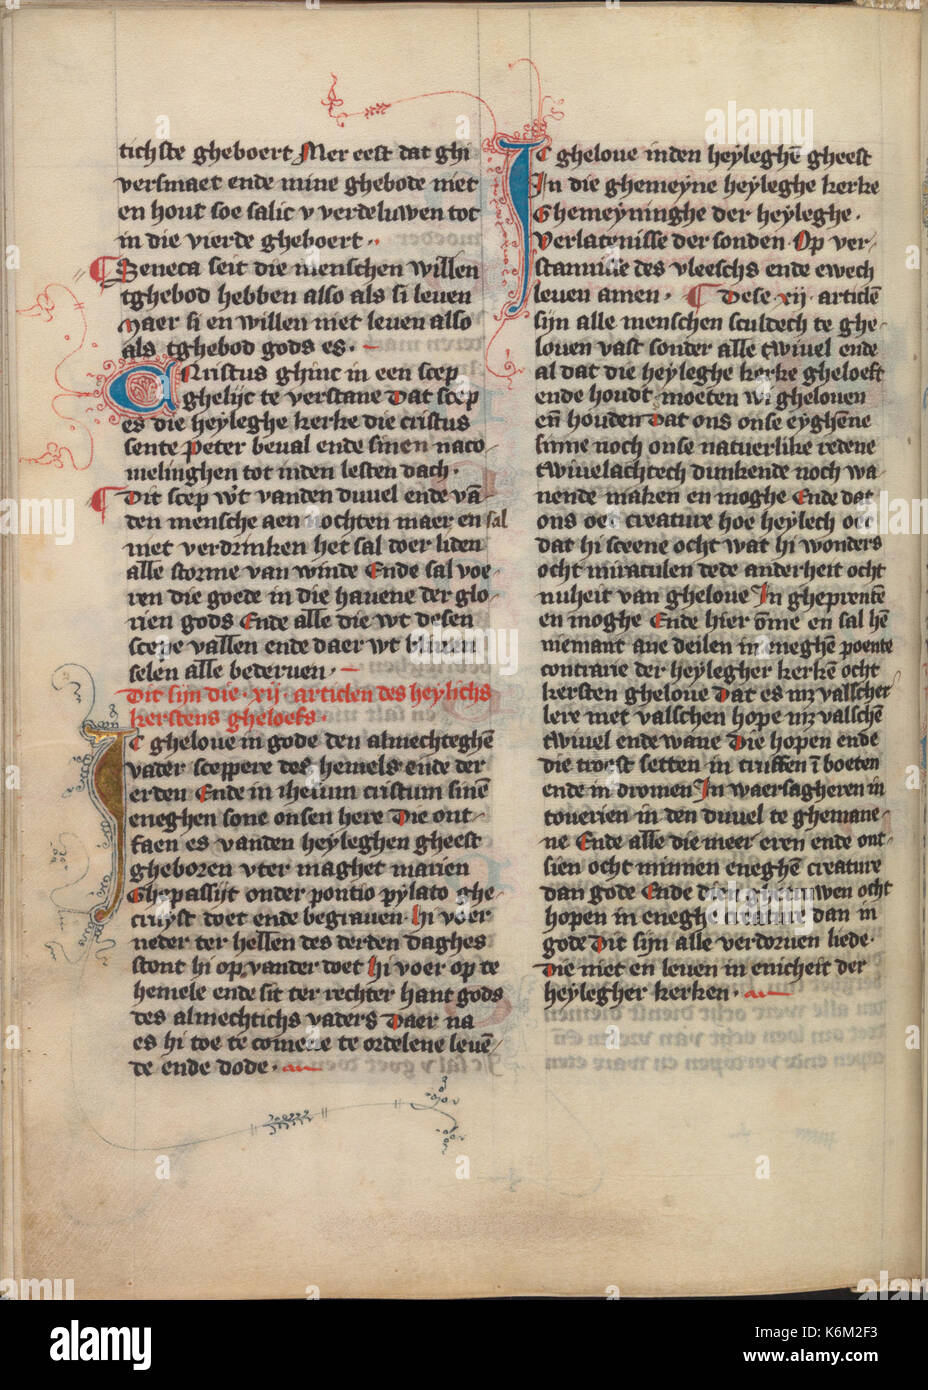 tichste gheboert Mer eest dat ghi
versmaet ende mine ghebode niet
en hout soe salic v verdeluwen tot
in die vierde gheboert ·
Seneca seit die menschen willen
tghebod hebben also als si leuen
Maer si en willen niet leuen also
als tghebod gods es ·
Cristus ghinc in een scep
ghelijc te verstane Dat scep
es die heyleghe kerke die cristus
sente peter beual ende sinen naco-
melinghen tot inden lesten dach ·
Dit scep wt vanden duuel ende vā-
den mensche aen ochten maer en sal
niet verdrinken het sal wer liden
alle storme van winde Ende sal voe-
ren die goede in die hauene der glo-
rien gods Ende alle die wt desen
scepe vallen ende daer wt bliuen
selen alle bederuen ·
Dit sijn die · xij · articlen des heylichs
kerstens gheloefs ·
Ic gheloue in gode den almechteghē
vader sceppere des hemels ende der
erden Ende in ihesum cristum sinē
eneghen sone onsen here Die ont-
faen es vanden heyleghen gheest
gheboren vter maghet marien
Ghepassijt onder pontio pylato ghe-
cruyst doet ende begrauen Hi voer
neder ter hellen des derden daghes
stont hi op vander doet Hi voer op te
hemele ende sit ter rechter hant gods
des almechtichs vaders Daer na
es hi toe te comene te ordelene leuē-
de ende dode ·
Ic gheloue inden heyleghē gheest
In die ghemeyne heyleghe kerke
Ghemeyninghe der heyleghe ·
Verlatenisse der sonden · Op ver-
stannisse des vleeschs ende ewech
leuen amen · Dese · xij · articlē
sijn alle menschen sculdech te ghe-
louen vast sonder alle twiuel ende
al dat die heyleghe kerke gheloeft
ende houdt moeten wi ghelouen
eñ houden Dat ons onse eyghēne
sinne noch onse natuerlike redene
twiuelachtech dunkende noch wa-
nende maken en moghe Ende dat
ons oec creature hoe heylech oec
dat hi sceene ocht wat hi wonders
ocht miraculen dede anderheit ocht
nuheit van gheloue In gheprentē
en moghe Ende hier ōme en sal hē
niemant aue deilen in eneghē poente
contrarie der heylegher kerkē ocht
kersten gheloue Dat es mz valscher
lere met valschen hope mz valschē
twiuel ende wane Die hopen ende
die troest setten in truffen ī boeten
ende in dromen In waersagheren in
touerien in den duuel te ghemane-
ne Ende alle die meer eren ende ont-
sien ocht minnen eneghē creature
dan gode Ende dien ghetruwen ocht
hopen in eneghe creature dan in
gode Dit sijn alle verdoruen liede ·
Die niet en leuen in enicheit der
heylegher kerken ·
alamy
alamy
Image ID: K6M2F3
www.alamy.com